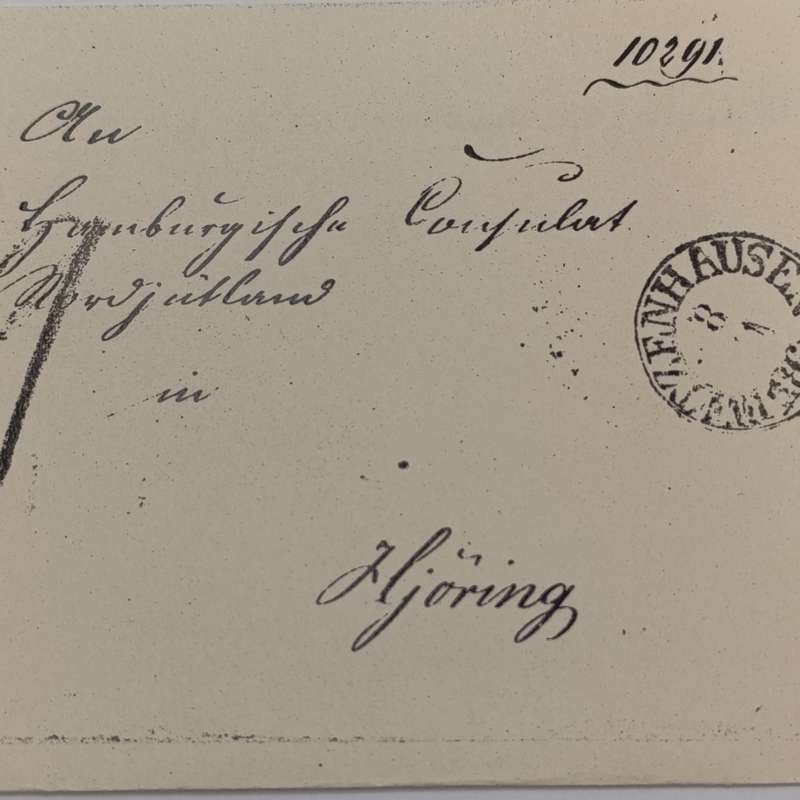 10291.
An
Hamburgische Consulat
Nordjütland
in
Hjöring
HAUSEN
8